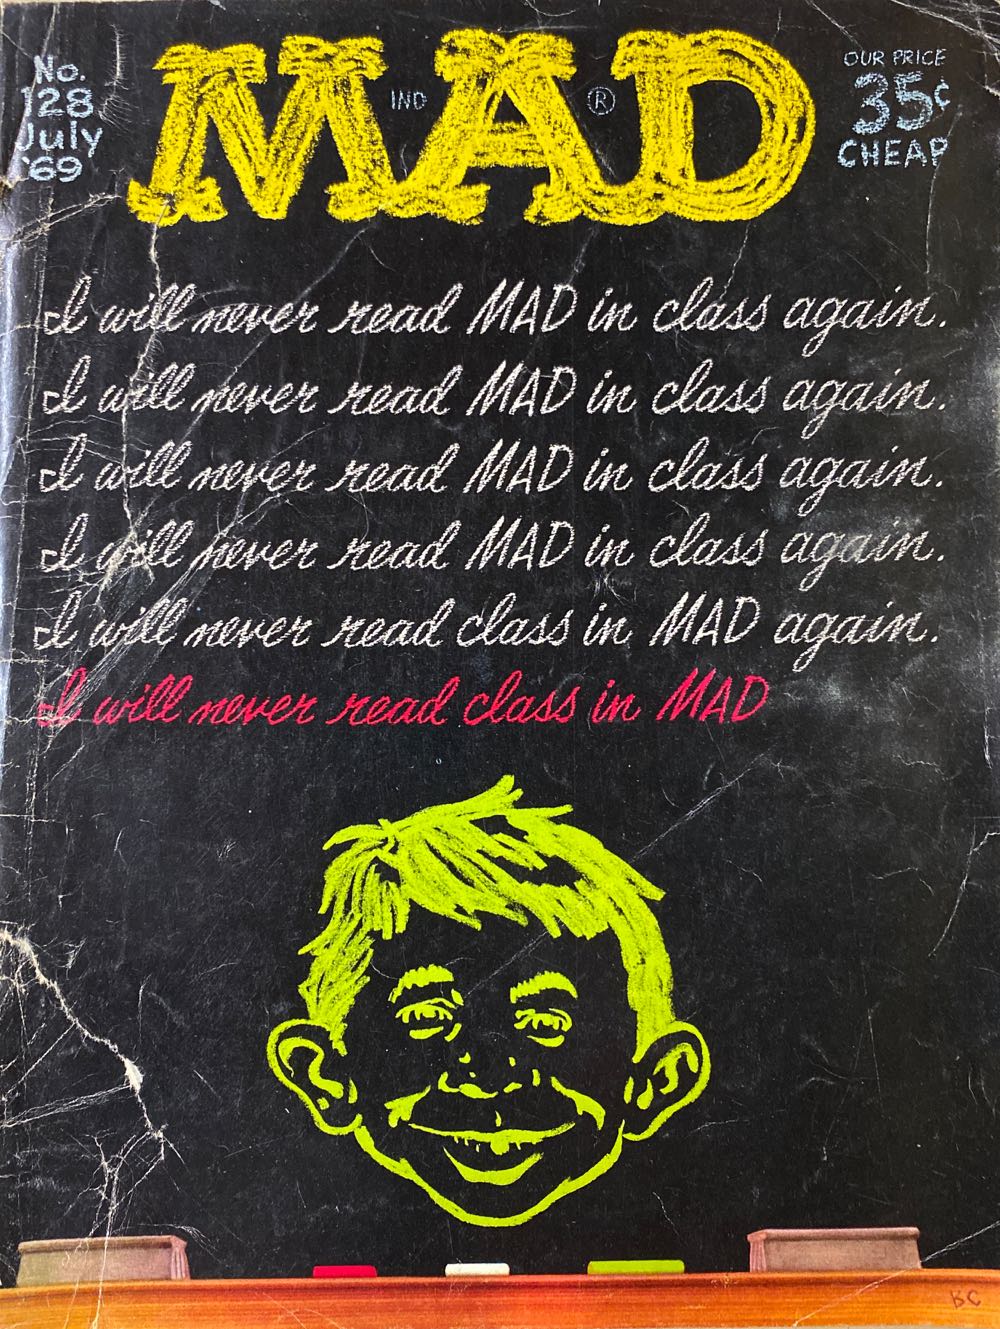 No.
128
July
'69
MAD
IND
®
OUR PRICE
35¢
CHEAP
I will never read MAD in class again.
I will never read MAD in class again.
I will never read MAD in class again.
I will never read MAD in class again.
I will never read class in MAD again.
I will never read class in MAD
BC